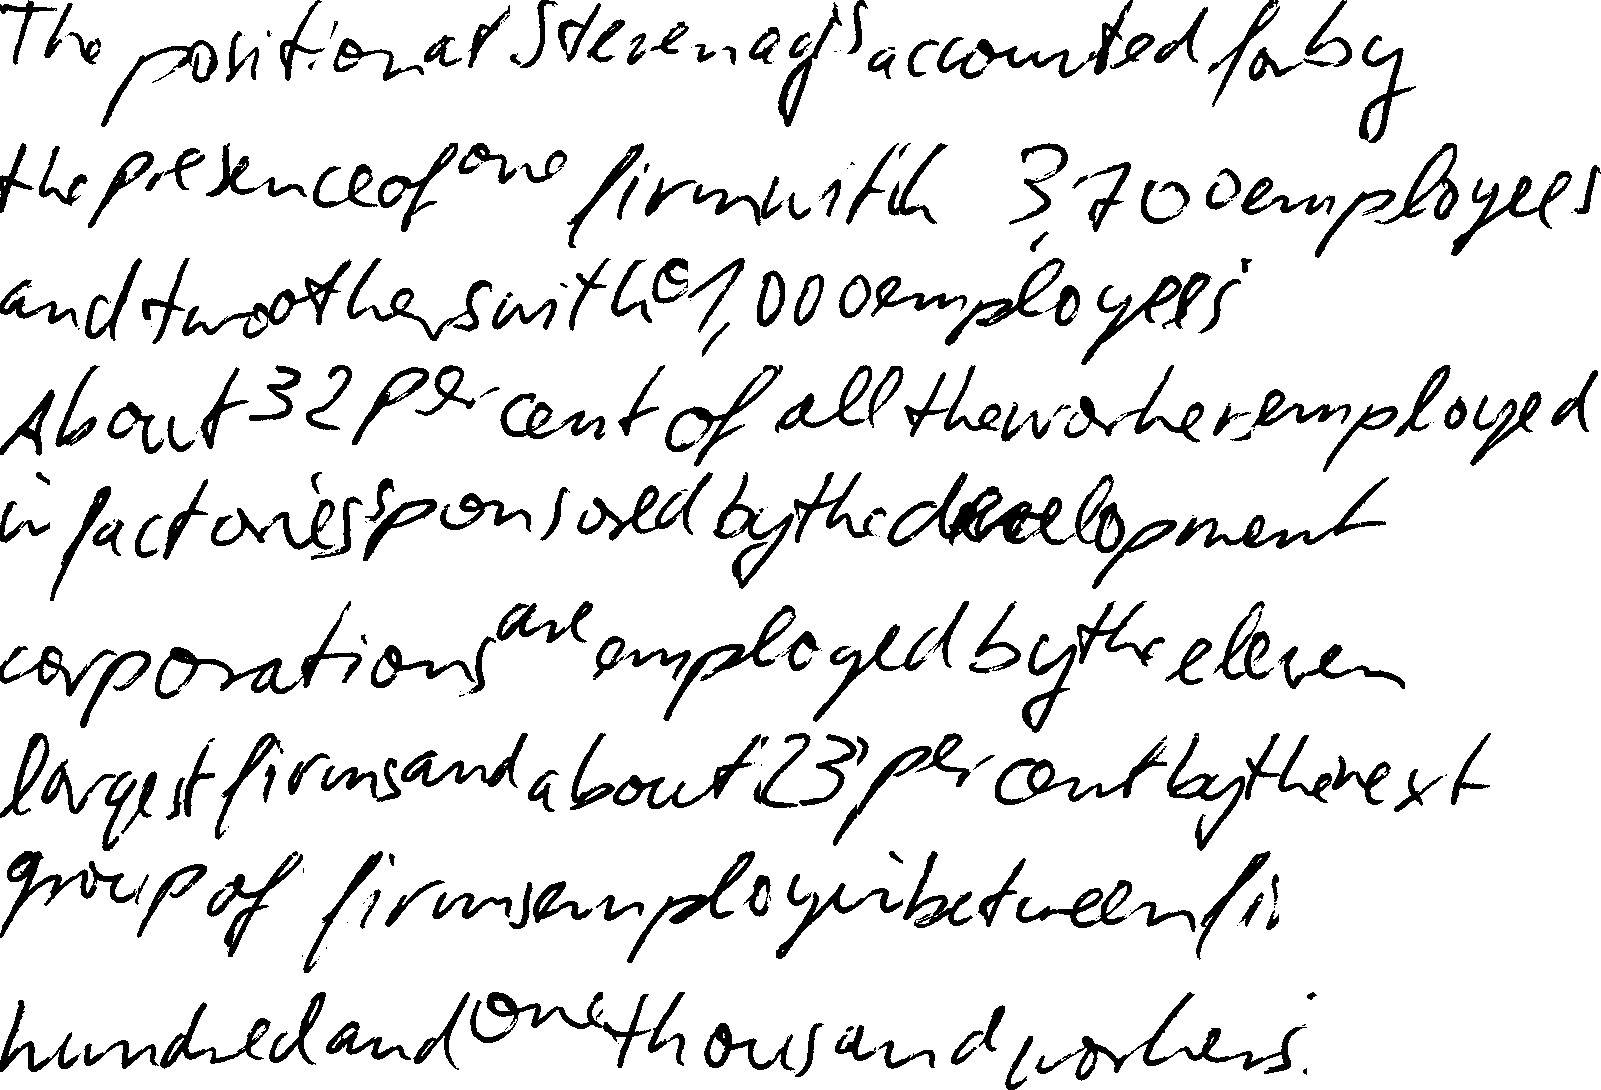 The position at Stevenage is accounted for by
the presence of one firm with 3,700 employees
and two others with 1,000 employees
About 32 per cent of all the workers employed
in factories sponsored by the development
corporations are employed by the eleven
largest firms and about 23 per cent by the next
group of firms employing between
hundred and one thousand workers.